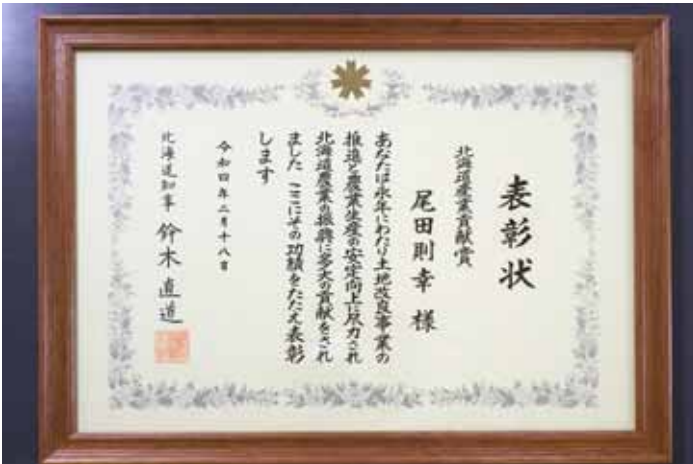 表彰状
北海道産業貢献賞
尾田則幸 様
あなたは永年にわたり土地改良事業の
推進と農業生産の安定向上に尽力され
北海道農業の振興に多大の貢献をされ
ました ここにその功績をたたえ表彰
します
令和四年二月十八日
北海道知事 鈴木直道